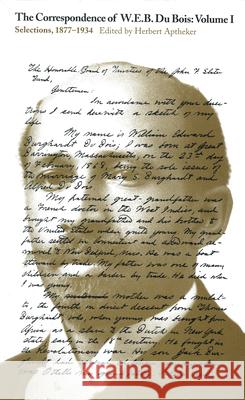 The Correspondence of W.E.B. Du Bois: Volume I
Selections, 1877–1934 Edited by Herbert Aptheker
The Honorable Board of Trustees of the John F. Slater
Fund,
Gentlemen:
In accordance with your direc-
tions I send herewith a sketch of my
life.
My name is William Edward
Burghardt Du Bois; I was born at Great
Barrington, Massachusetts, on the 23d day of
February, 1868, being the sole issue of
the marriage of Mary S. Burghardt and
Alfred Du Bois.
My paternal great-grandfather was
a French doctor in the West Indies, and
brought my grandfather and his brother to
the United States when quite young. My grand-
father settled in Connecticut and afterward
to New Bedford, Mass. He was a boat
by trade. My father was one of many
children and a barber by trade. He died when
I was young.
My mother was a mulat-
to, the fourth in direct descent from Thomas
Burghardt, who, when young, was brought from
Africa as a slave to the Dutch in New York
state, early in the 18th century. He fought in
the Revolutionary war. His son Jack Bur-